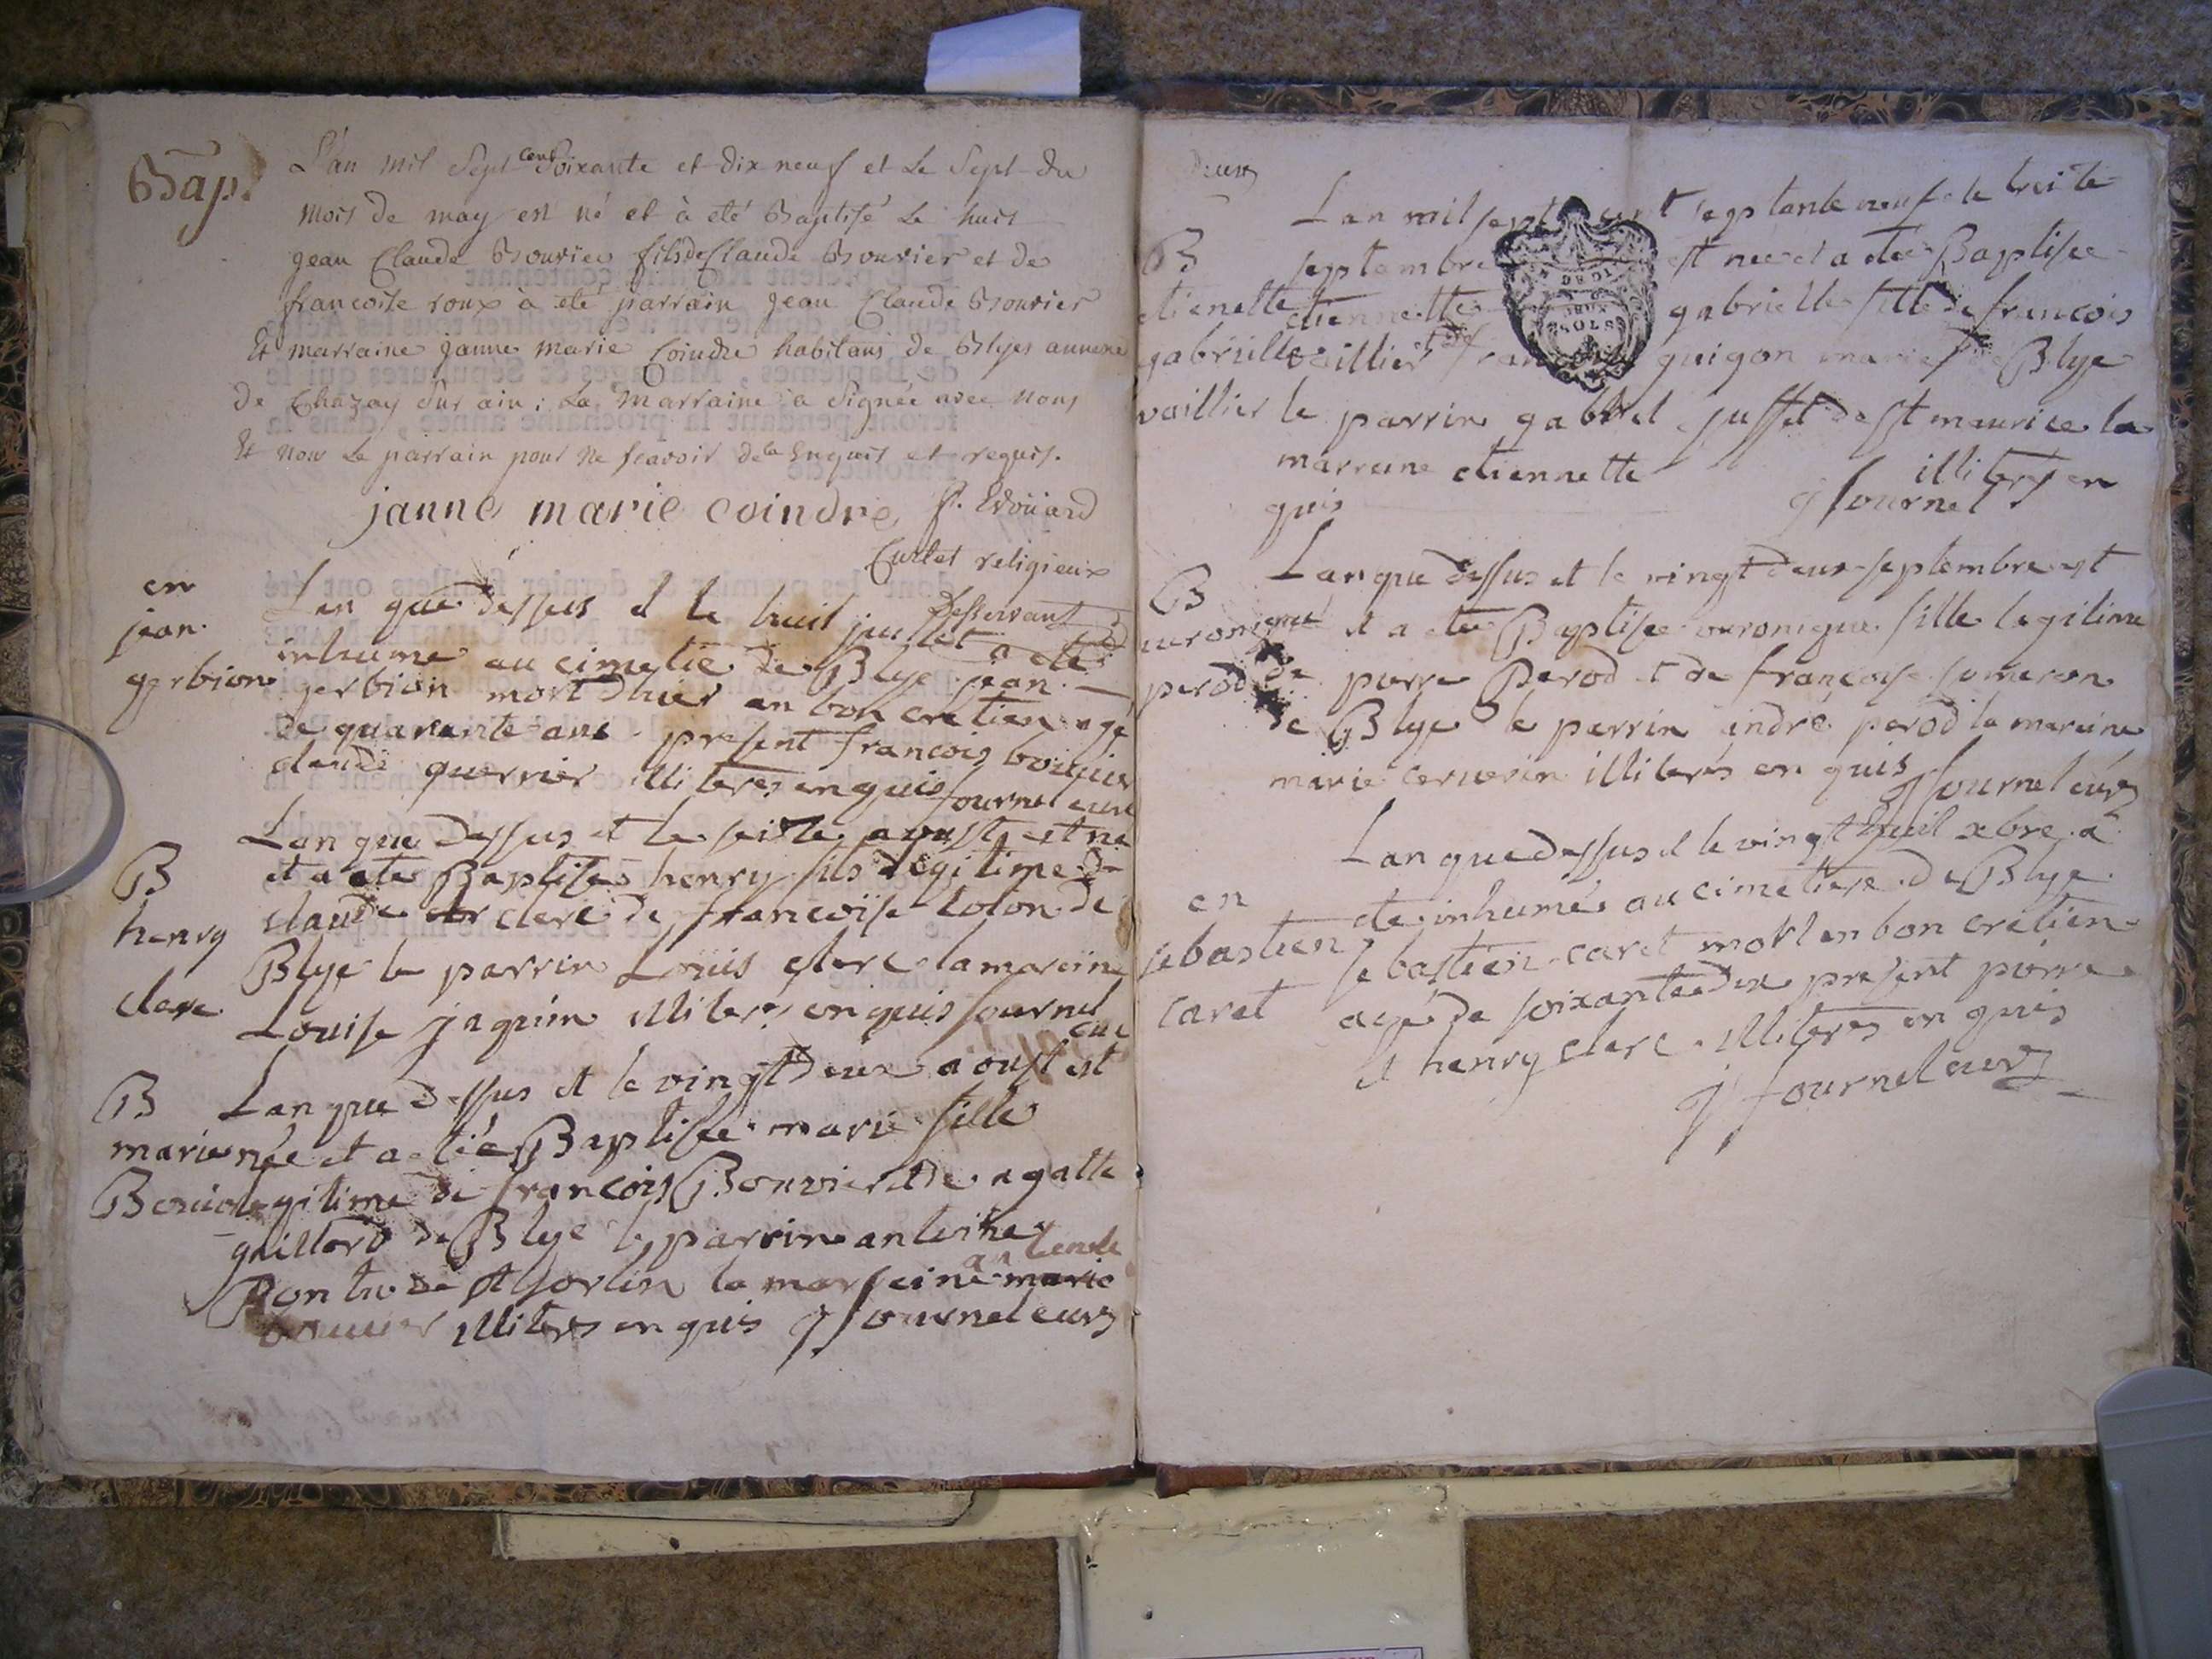 Bap.
L'an mil Sept cent Soixante et dix neuf et le Sept du
mois de may est né et à eté Baptisé le huit
jean Claude Bouvier fils de Claude Bouvier et de
francoise roux à eté parrain jean Claude Bouvier
Et marraine janne marie Coindre habitans de Blyes annexe
de Chazay Sur ain ; La marraine a Signée avec nous
Et non le parrain pour ne scavoir de la Enquis et requis.
janne marie coindre f. Edoüard
Curtet religieux
desservant
en
jean
gerbion
Lan que dessus et le huit juillet a ete
inhume au cimetie de Blye jean
gerbion mort dhier en bon cretien age
de quarante ans present francois bouvier
claude guerrier illiteres enquis fournel curé
B
henry
clerc
Lan que dessus et le seisle aoust est ne
et a ete Baptise henry fils legitime de
claude clerc de francoise colon de
Blye le parrin Louis clerc la mareine
Louise jaquin illiteres enquis fournel
cure
B
marie
Bouvier
Lan que dessus et le vingt deux aoust est
née et a etée Baptisée marie fille
legitime de francois Bouvier et de agatte
guillard de Blye le parrin antoine
de st sorlin la marreine marie
bouvier illiteres enquis J fournel curé
deux
B
etienette
gabrielle
vaillier
Lan mil sept cent septante neuf le
septembre est nee et a etee Baptisee
etiennette gabrielle fille de francois
vaillier et de guigon marie de Blye
le parrin gabriel juffet de st maurice la
marreine etiennette illiteres en
quis J fournel
B
veronique
perod
Lan que dessus et le vingt deux septembre est
et a ete Baptisee veronique fille legitime
de pierre Perod et de francoise someron
de Blye le parrin andré perod la mareine
marie illiterés en quis J fournel curé
en
sebastien
caret
Lan que dessus et le vingt huit xbre a
ete inhumé au cimetiere de Blye
sebastien caret mort en bon cretien
agé de soixante dix present pierre
et henry clerc illiteres en quis
J fournel curé